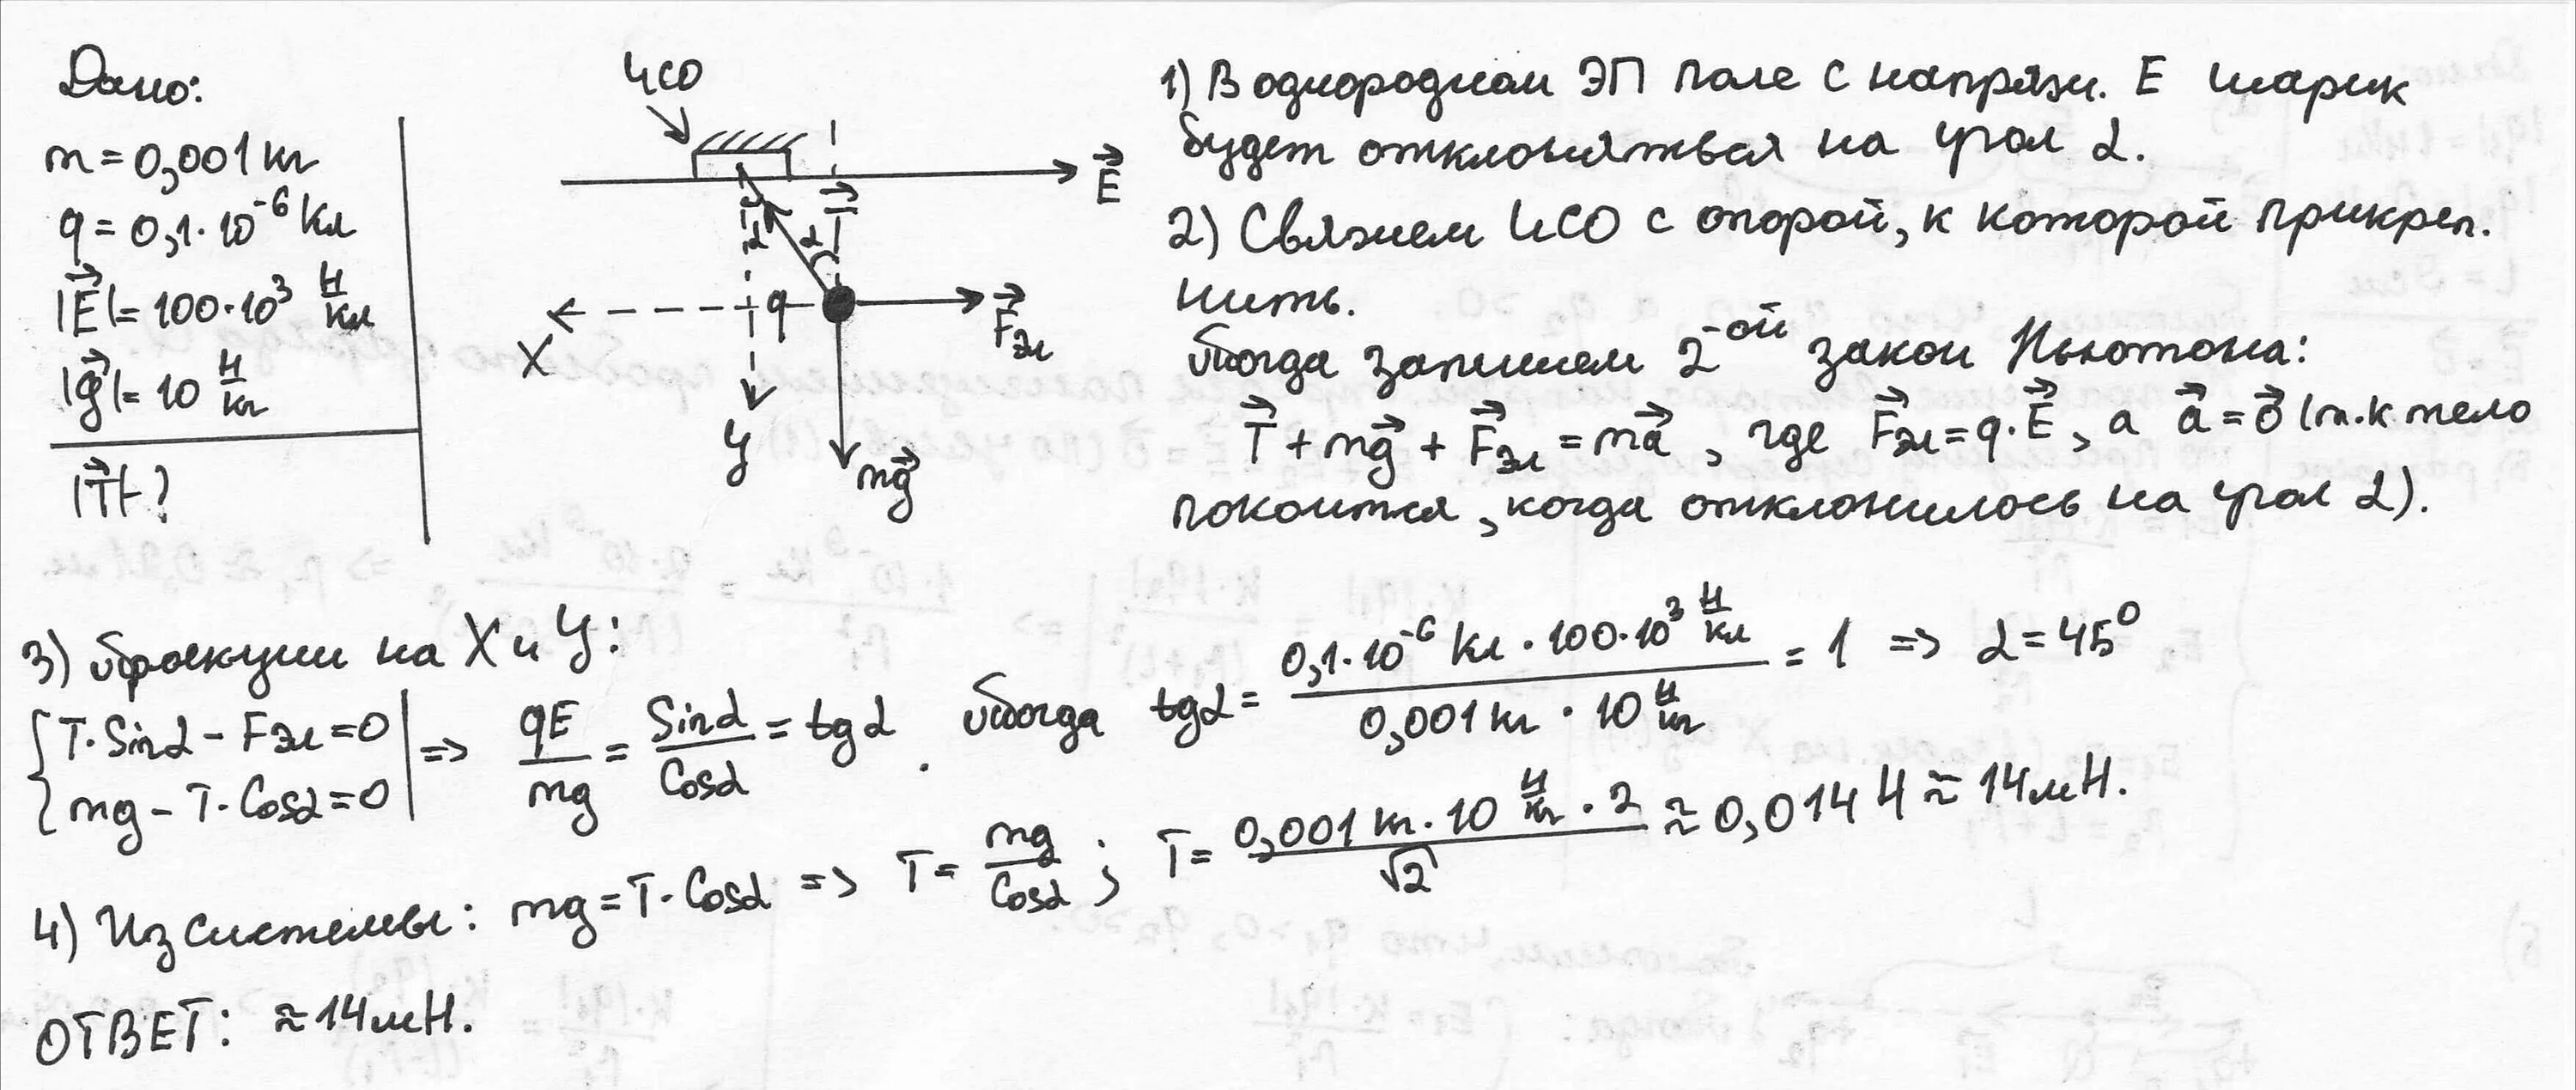 Дано:
m = 0,001 кг
q = 0,1·10⁻⁶ Кл
|E⃗| = 100·10³ Н/Кл
|g⃗| = 10 Н/кг
|T⃗| - ?
ИСО
E⃗
T⃗
α α
q
F⃗эл
X
y
mg⃗
1) В однородном ЭП поле с напряжн. E шарик
будет отклоняться на угол α.
2) Свяжем ИСО с опорой, к которой прикреп.
нить.
Тогда запишем 2-ой закон Ньютона:
T⃗ + mg⃗ + F⃗эл = ma⃗, где F⃗эл = q·E⃗, а a⃗ = 0⃗ (т.к тело
покоится, когда отклонилось на угол α).
3) Проекции на X и y:
{ T·Sinα - Fэл = 0 | => qE/mg = Sinα/Cosα = tgα. Тогда tgα = (0,1·10⁻⁶ Кл · 100·10³ Н/Кл)/(0,001 кг · 10 Н/кг) = 1 => α = 45°
{ mg - T·Cosα = 0 |
4) Из системы: mg = T·Cosα => T = mg/Cosα; T = (0,001 кг·10 Н/кг · 2)/√2 ≈ 0,014 Н ≈ 14 мН.
ОТВЕТ: ≈ 14 мН.